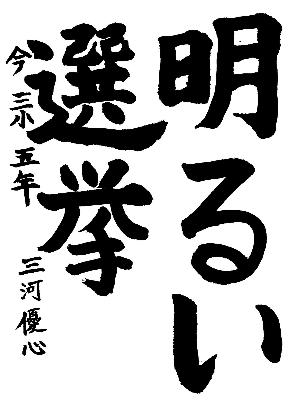 明るい
選挙
今三小 五年 三河優心